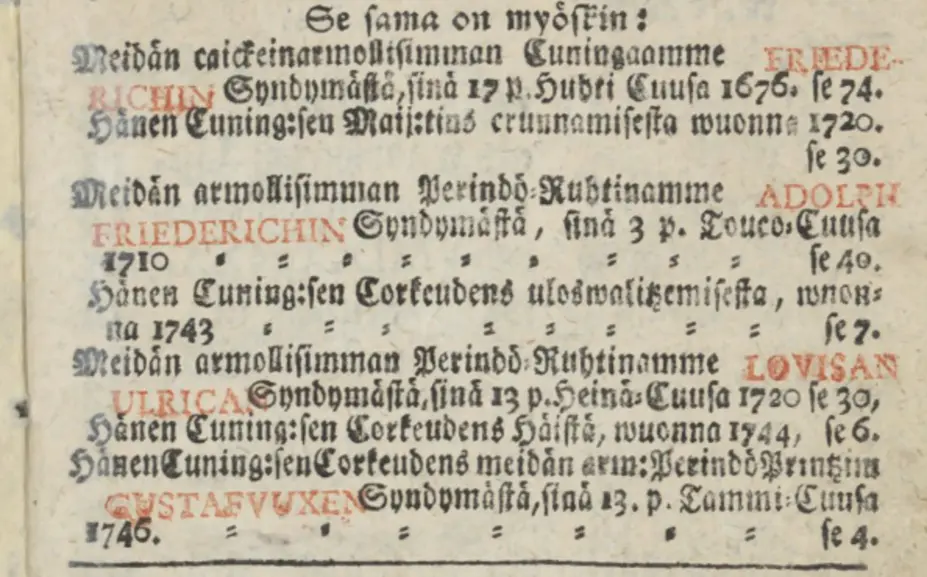 Se sama on myöskin:
Meidän caickeinarmollisimman Cuningaamme FRIEDE-
RICHIN Syndymästä, sinä 17 p. Huhti Cuusa 1676. se 74.
Hänen Cuning:sen Maij:tins cruunamisesta wuonna 1720.
se 30.
Meidän armollisimman Perindö-Ruhtinamme ADOLPH
FRIEDERICHIN Syndymästä, sinä 3 p. Touco-Cuusa
1710 - - - - - - - - - se 40.
Hänen Cuning:sen Corkeudens uloswalitzemisesta, wuon-
na 1743 - - - - - - - - se 7.
Meidän armollisimman Perindö-Ruhtinamme LOVISAN
ULRICAN Syndymästä, sinä 13 p. Heinä-Cuusa 1720 se 30,
Hänen Cuning:sen Corkeudens Häistä, wuonna 1744, se 6.
Hänen Cuning:sen Corkeudens meidän arm: Perindö Printzim
GUSTAFVUXEN Syndymästä, sinä 13. p. Tammi-Cuusa
1746. - - - - - - - se 4.